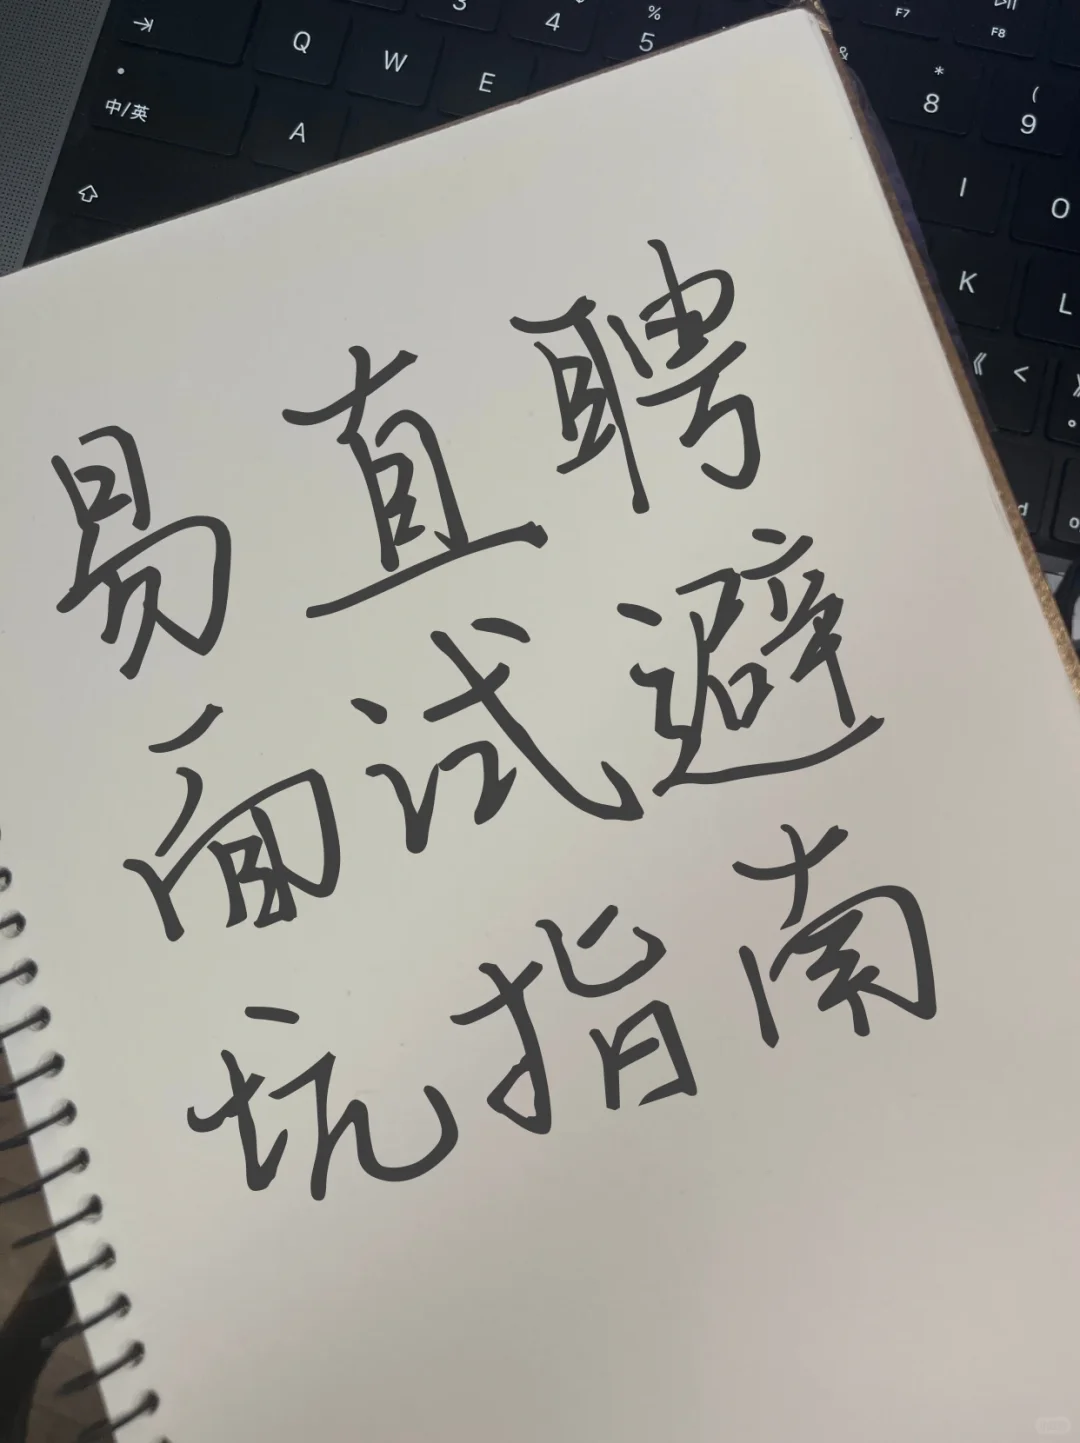 易直聘
面试避
坑指南
Q W E
3 4 % 5
中/英 A
F7 F8
* 8 ( 9
&
I O
K L
《 <